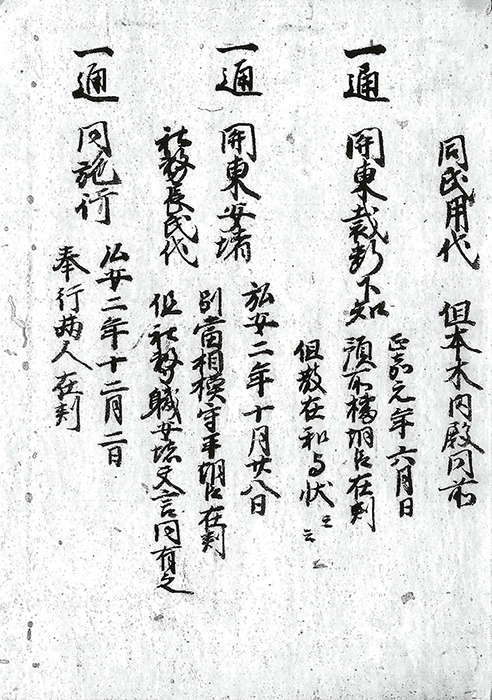 同氏用代 但本木内殿同前
一通 関東裁許下知 正嘉元年六月日
預所橘朝臣在判
但数在和与状云云
一通 関東安堵 弘安二年十月廿八日
別當相模守平朝臣在判
社務長氏代 但社務職安堵文言同有之
一通 同施行 弘安二年十二月二日
奉行両人在判